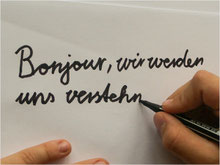 Bonjour, wir werden
uns verstehn